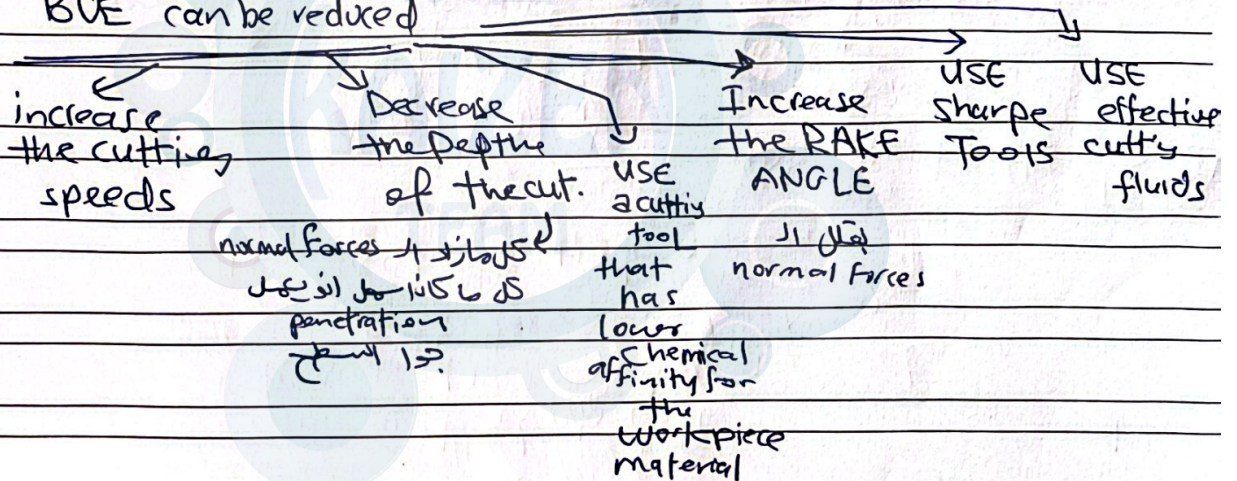 BUE can be reduced
increase
the cutting
speeds
Decrease
the Depthe
of the cut.
كل ما زاد الـ normal forces
كل ما كان اسهل انه يعمل
penetration
جوا السطح
USE
a cuttig
tool
that
has
lower
chemical
affinity for
the
workpiece
material
Increase
the RAKE
ANGLE
بقلل الـ
normal Forces
USE
sharpe
Tools
USE
effective
cutt'g
fluids
KAIZEN
TEAM